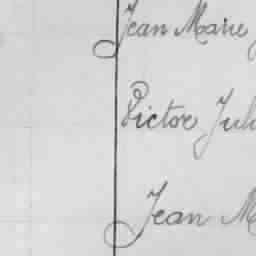 Jean Marie
Victor Jul
Jean M